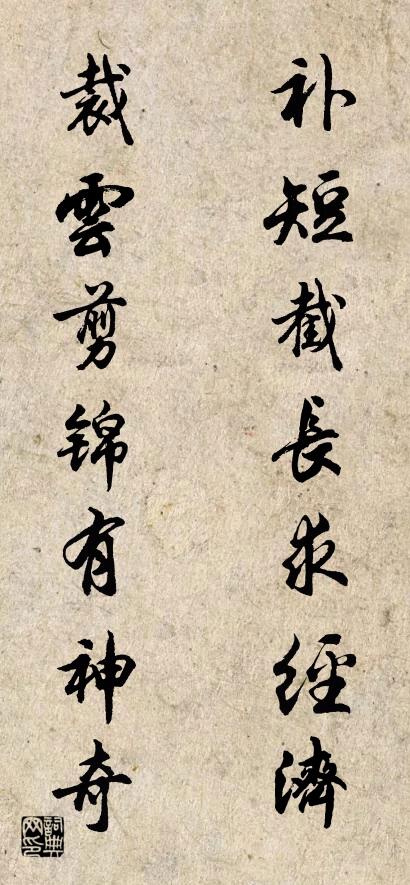 补短截長求經濟
裁雲剪锦有神奇
詞典网印